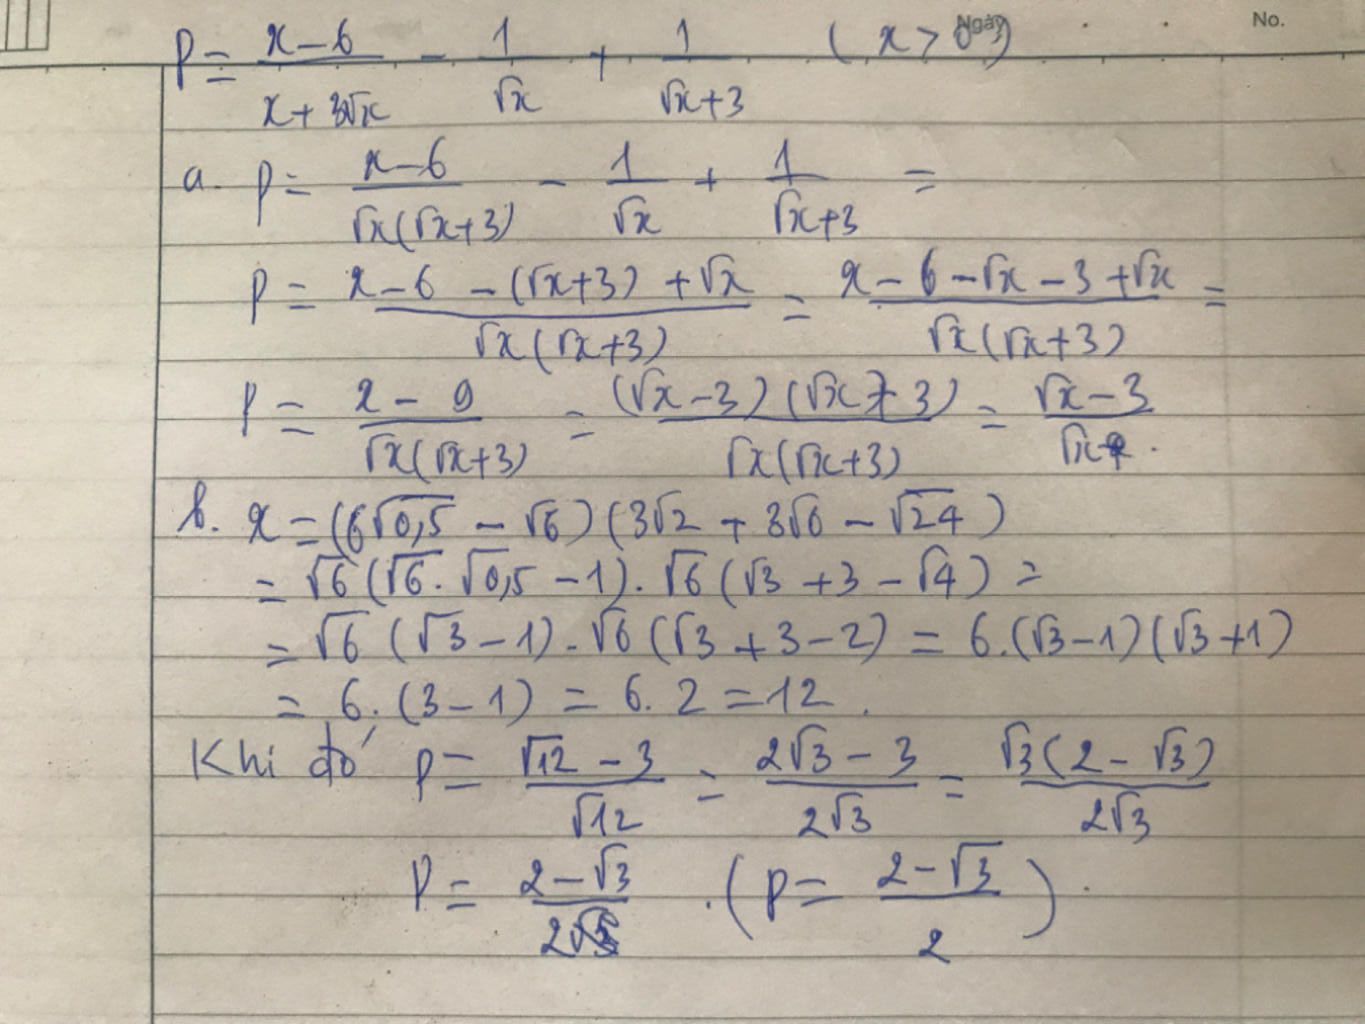 Ngày No.
P = \frac{x-6}{x+3\sqrt{x}} - \frac{1}{\sqrt{x}} + \frac{1}{\sqrt{x}+3} (x >
a. P = \frac{x-6}{\sqrt{x}(\sqrt{x}+3)} - \frac{1}{\sqrt{x}} + \frac{1}{\sqrt{x}+3} =
P = \frac{x-6-(\sqrt{x}+3)+\sqrt{x}}{\sqrt{x}(\sqrt{x}+3)} = \frac{x-6-\sqrt{x}-3+\sqrt{x}}{\sqrt{x}(\sqrt{x}+3)} =
P = \frac{x-9}{\sqrt{x}(\sqrt{x}+3)} = \frac{(\sqrt{x}-3)(\sqrt{x}+3)}{\sqrt{x}(\sqrt{x}+3)} = \frac{\sqrt{x}-3}{\sqrt{x}}.
b. x = (6\sqrt{0,5} - \sqrt{6})(3\sqrt{2} + 3\sqrt{6} - \sqrt{24})
= \sqrt{6}(\sqrt{6}.\sqrt{0,5} - 1).\sqrt{6}(\sqrt{3} + 3 - \sqrt{4}) =
= \sqrt{6}(\sqrt{3} - 1).\sqrt{6}(\sqrt{3} + 3 - 2) = 6.(\sqrt{3} - 1)(\sqrt{3} + 1)
= 6.(3 - 1) = 6.2 = 12.
Khi đó P = \frac{\sqrt{12}-3}{\sqrt{12}} = \frac{2\sqrt{3}-3}{2\sqrt{3}} = \frac{\sqrt{3}(2-\sqrt{3})}{2\sqrt{3}}
P = \frac{2-\sqrt{3}}{2} .(P = \frac{2-\sqrt{3}}{2}).